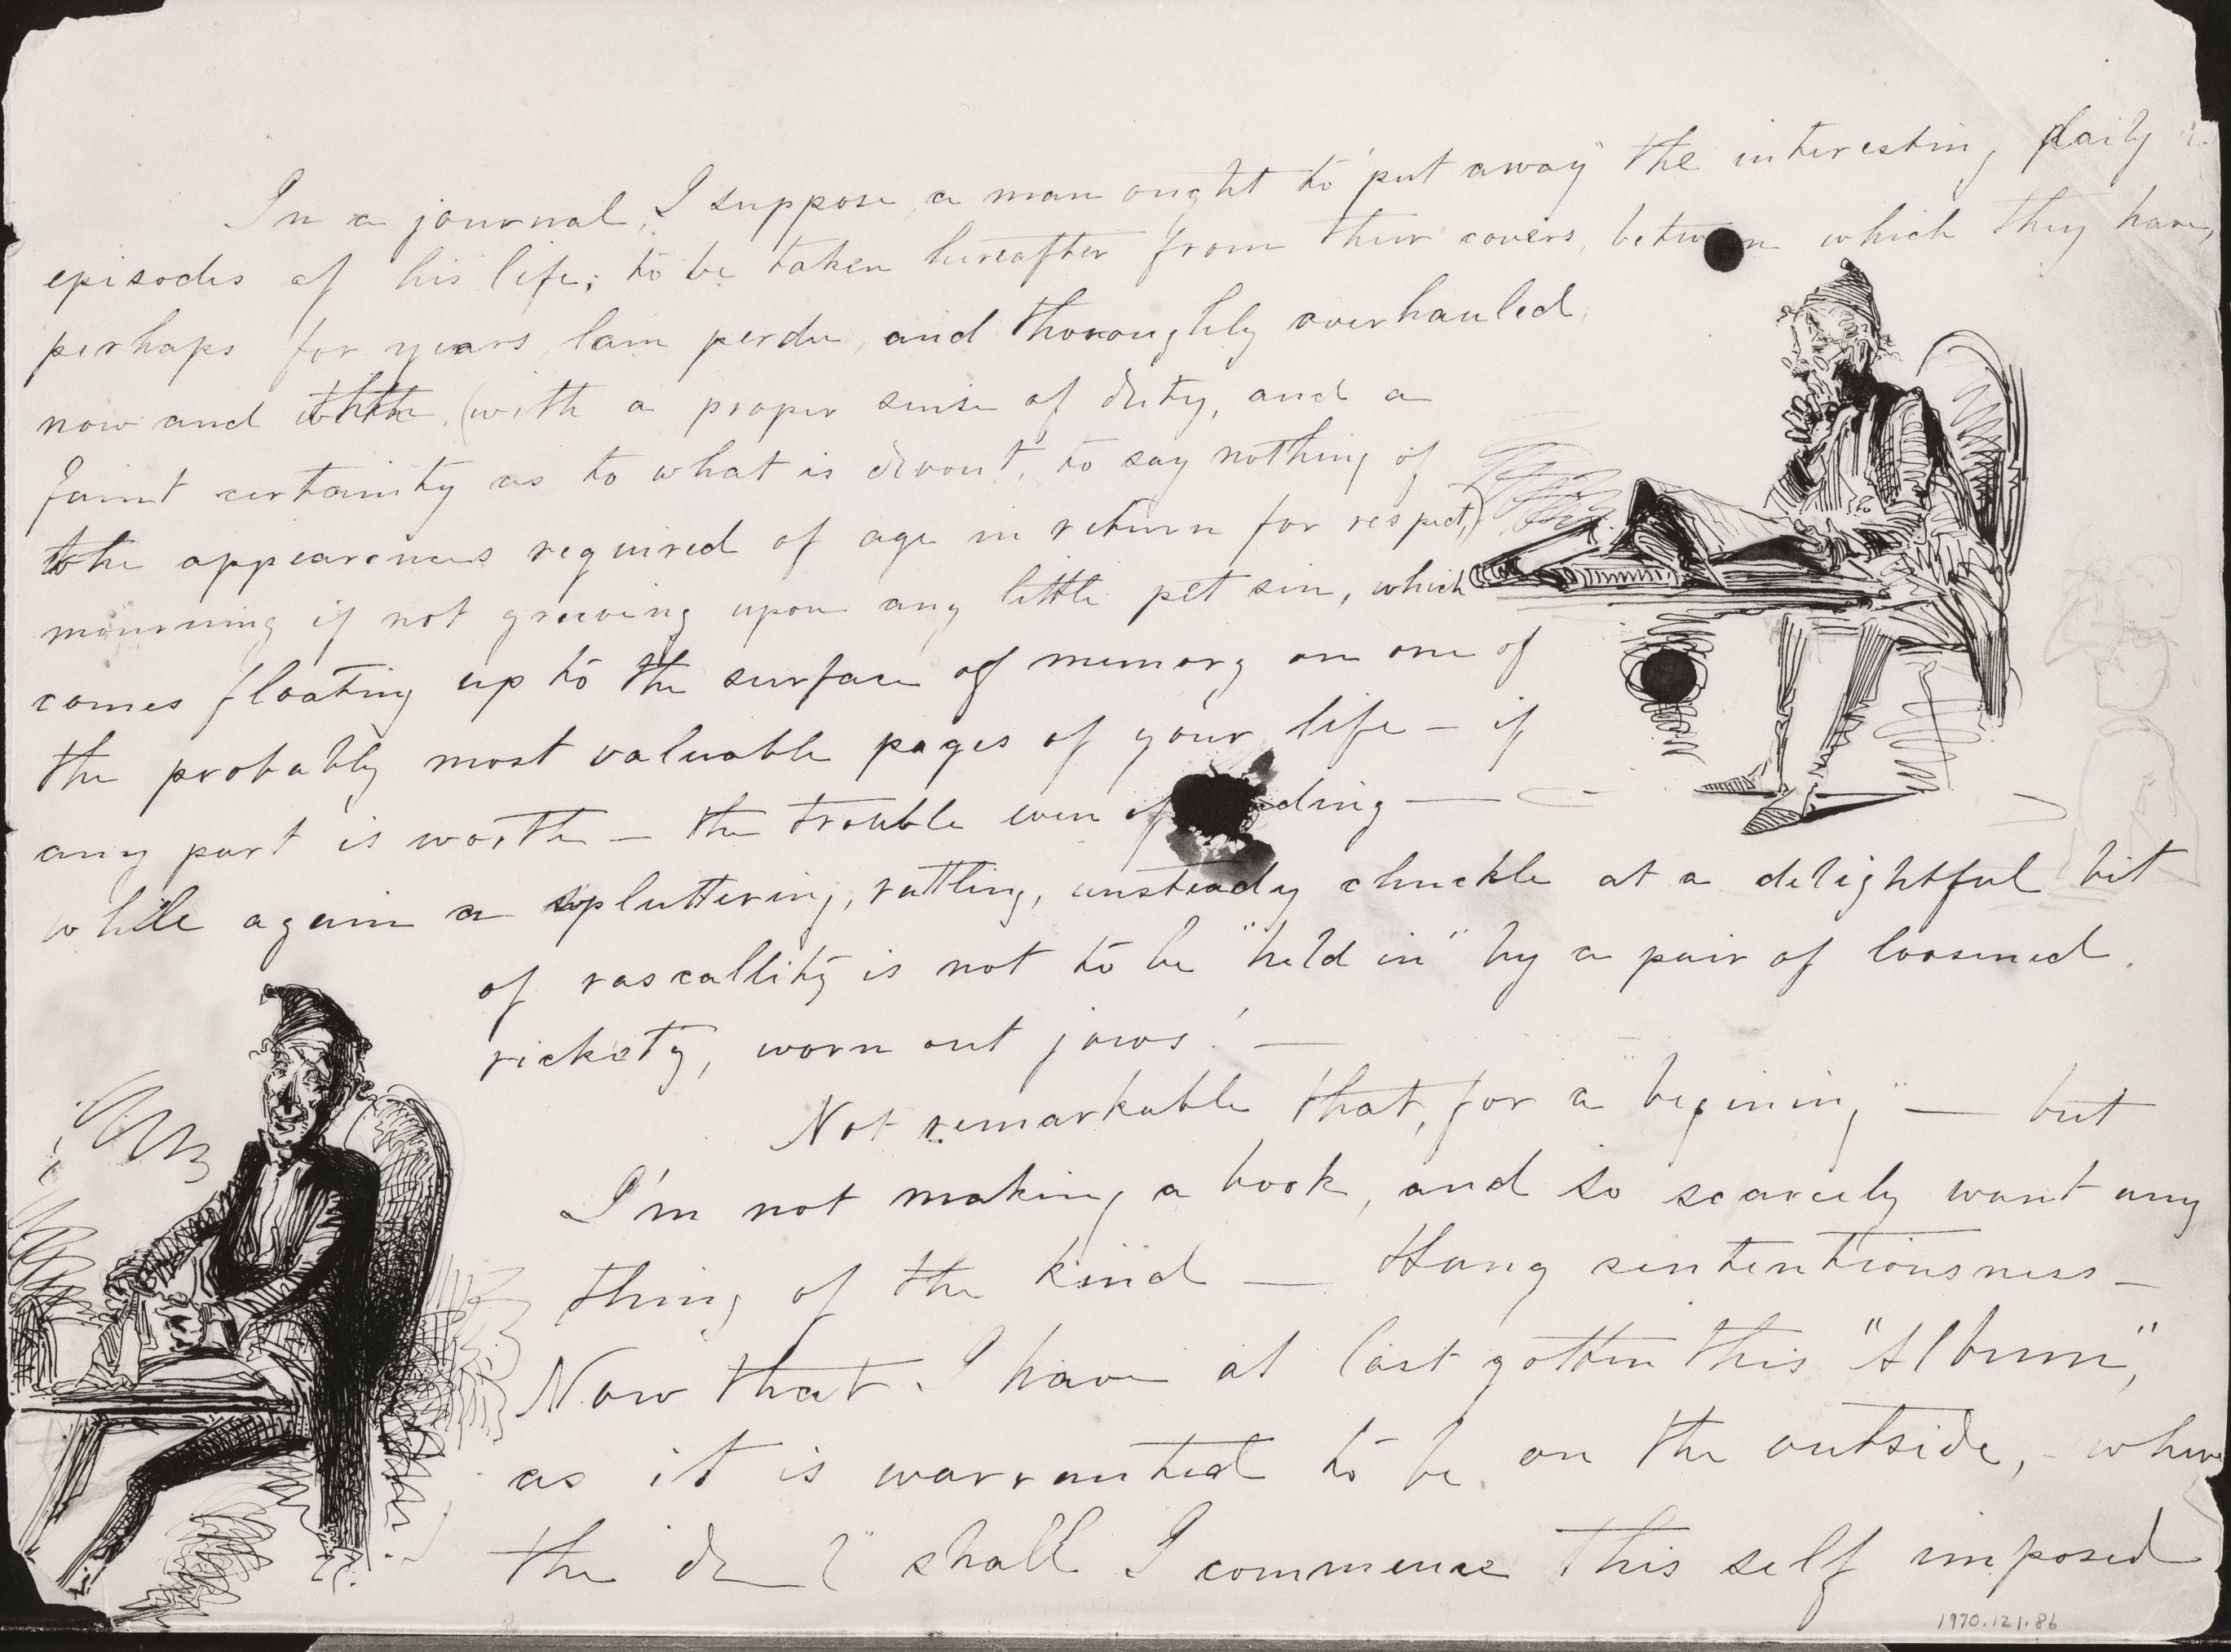 In a journal, I suppose, a man ought to "put away" the interesting daily
episodes of his life; to be taken hereafter from their covers, between which they have,
perhaps for years, lain perdu, and thoroughly overhauled
now and then, (with a proper sense of duty, and a
faint certainty as to what is devout, to say nothing of
the appearances required of age in return for respect,)
mourning if not greiving upon any little pet sin, which
comes floating up to the surface of memory on one of
the probably most valuable pages of your life – if
any part is worth – the trouble even of ding —
while again a spluttering, rattling, unsteady chuckle at a delightful bit
of rascallity is not to be "held in" by a pair of loosened,
rickety, worn out jaws! —
Not remarkable that, for a "begining" — but
I'm not making a book, and so scarcely want any
thing of the kind — Hang sententiousness –
Now that I have at last gotten this "Album",
as it is warranted to be, on the outside, – where
the d—l" shall I commence this self imposed
1970.121.86